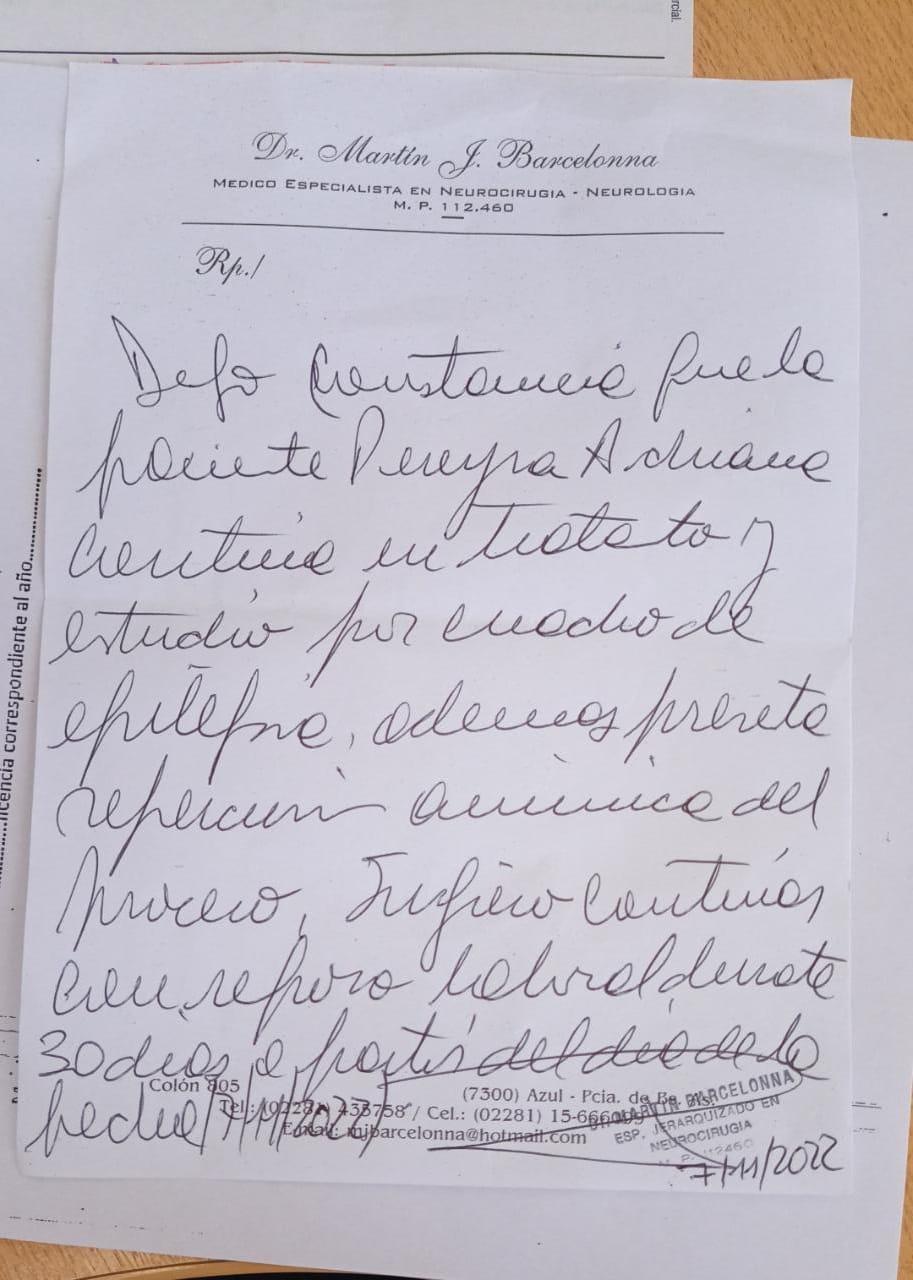 rcial.
Dr. Martín J. Barcelonna
MEDICO ESPECIALISTA EN NEUROCIRUGIA - NEUROLOGIA
M. P. 112.460
Rp./
Dejo constancia que la
paciente Pereyra Adriana
continúa en tratato y
estudio por cuadro de
epilepsia, ademas preseta
repercusión anímica del
proceso, sugiero continúar
con reposo laboral durate
30 dias a partir del día de la
fecha (7/11/22)
Colón 805 (7300) Azul - Pcia. de Bs. As.
Tel.: (02281) 433758 / Cel.: (02281) 15-666
Email: mjbarcelonna@hotmail.com
Dr. MARTIN BARCELONNA
ESP. JERARQUIZADO EN
NEUROCIRUGIA
M. P. 112460
7/11/2022
licencia correspondiente al año